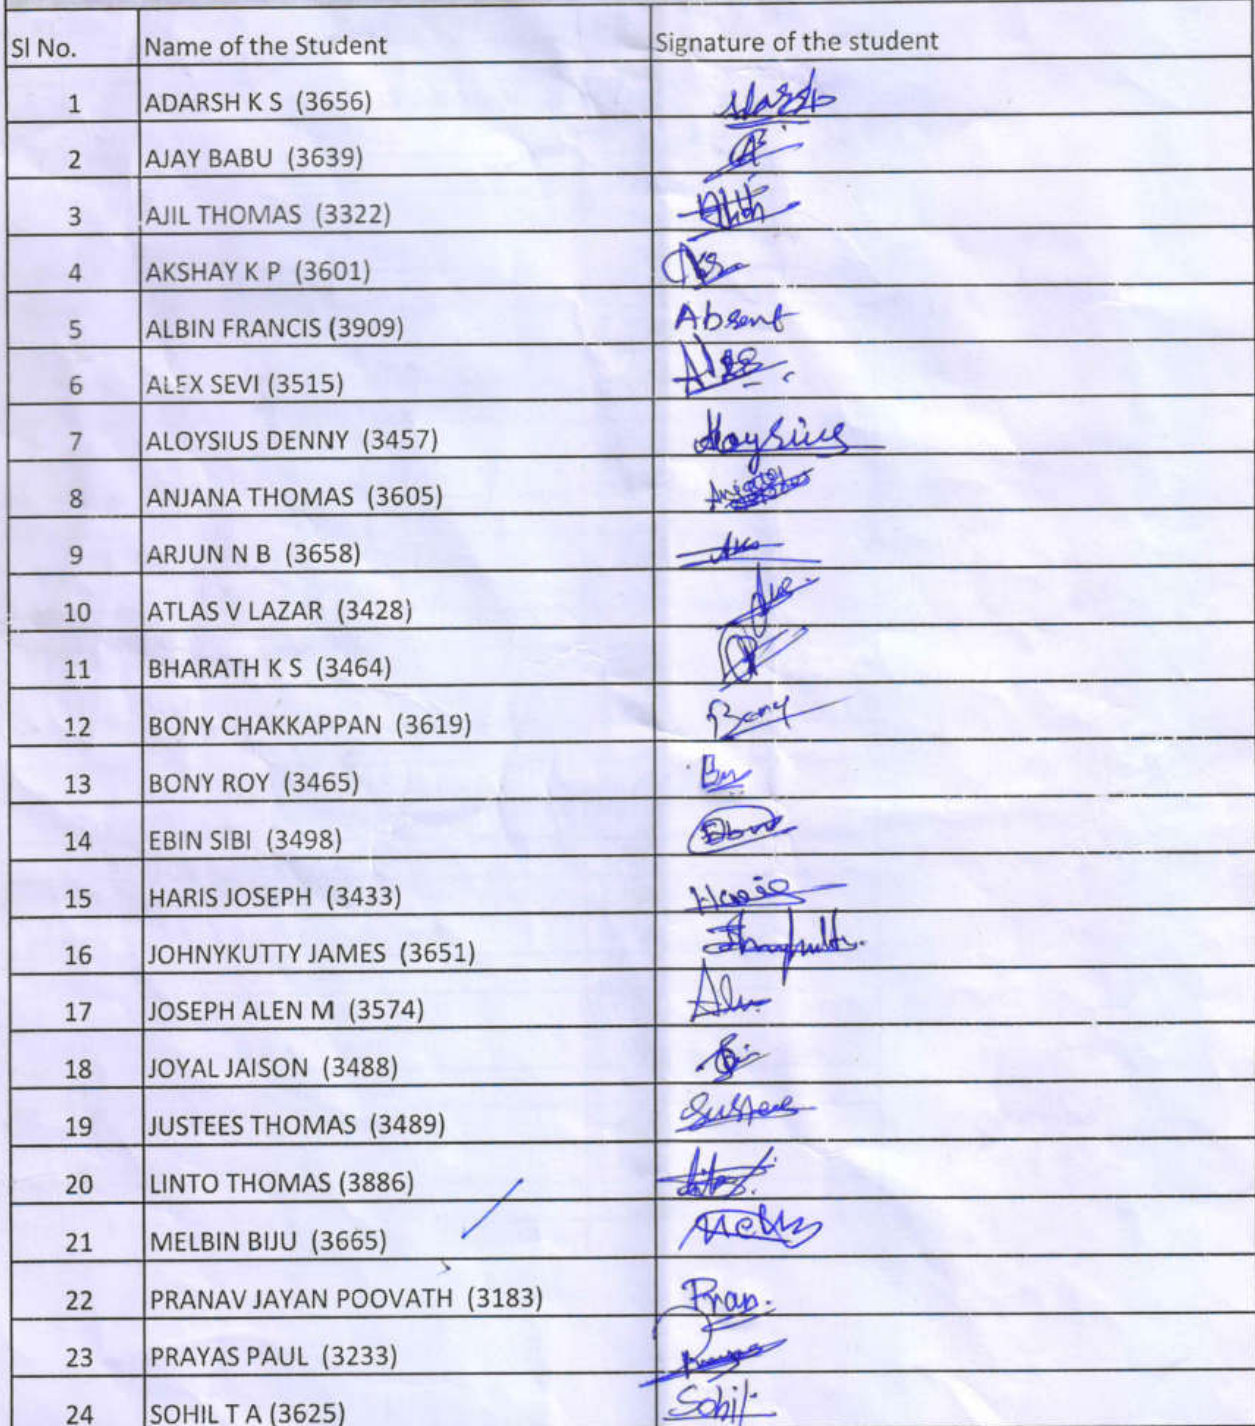 Sl No. Name of the Student Signature of the student
1 ADARSH K S (3656)
2 AJAY BABU (3639)
3 AJIL THOMAS (3322)
4 AKSHAY K P (3601)
5 ALBIN FRANCIS (3909) Absent
6 ALEX SEVI (3515)
7 ALOYSIUS DENNY (3457) Aloysius
8 ANJANA THOMAS (3605)
9 ARJUN N B (3658)
10 ATLAS V LAZAR (3428)
11 BHARATH K S (3464)
12 BONY CHAKKAPPAN (3619) Bony
13 BONY ROY (3465)
14 EBIN SIBI (3498)
15 HARIS JOSEPH (3433) Haris
16 JOHNYKUTTY JAMES (3651)
17 JOSEPH ALEN M (3574)
18 JOYAL JAISON (3488)
19 JUSTEES THOMAS (3489) Justees
20 LINTO THOMAS (3886)
21 MELBIN BIJU (3665)
22 PRANAV JAYAN POOVATH (3183) Pran.
23 PRAYAS PAUL (3233)
24 SOHIL T A (3625) Sohil